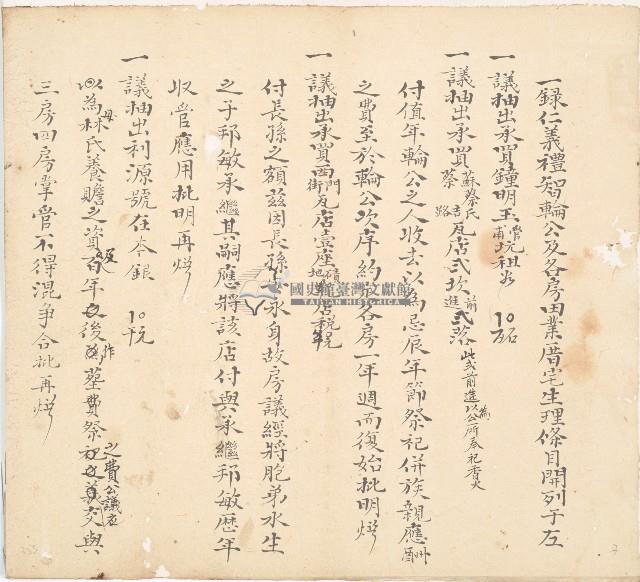 一錄仁義禮智輪公及各房田業厝宅生理條目開列于左
一議抽出承買鐘明玉甫坑祖
一議抽出承買蘇蔡氏蔡吉路瓦店弍坎前進弍落此弍前進以為公所奉祀香火
付值年輪公之人收去以為忌辰年節祭祀併族親應酬
之費至於輪公次序約各房一年週而復始批明
一議抽出承買西門街瓦店壹座店稅
付長孫之額茲因長孫承身故房議經將胞弟水生
之子邦敏承繼其嗣應將該店付與承繼邦敏歷年
收管應用批明再
一議抽出利源號在本銀
以為母林氏養贍之資百年後作塋費祭祀之費公議應交與
三房四房掌管不得混爭合批再
國史館臺灣文獻館
TAIWAN HISTORICA